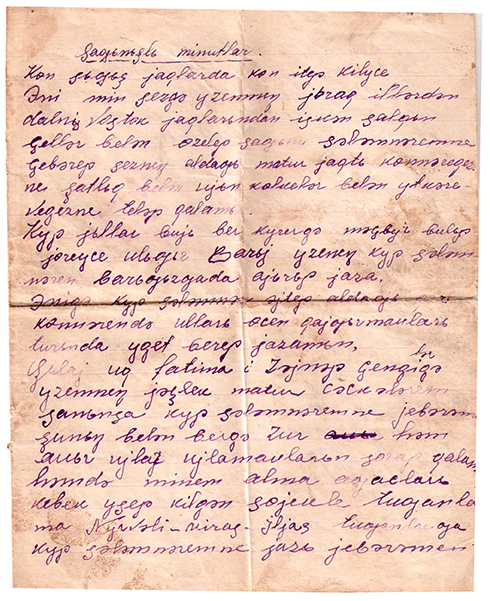 Sagьnьşlь minutlar.
Kon sьgьş jaqlarda kon itep kilyce
Əni min sezgə yzemneŋ jьraq illərdən
dalni Vostok jaqlarьnnan iskən salqьn
çellər belən ozelep sagьnь səlamnəremne
çebərep sezneŋ aldagь matur jaqtь konnəregez
ne şatlьq belən ujьn kolkelər belən ytkəre-
vegezne teləp qalam.
Kyp jьllar bujь ber kyrergə məçbyr bulьp
joryce ulьgьz Barьj yzeneŋ kyp səlam
nəren barьgьzgada ajьrьp jaza.
Əniga kyp səlamnər əjtep aldagь
konnərendə ullarь ocen qajgьrmaulari
turьnda yget berep jazamьn,
fatima i Zəjnəp
yzemneŋ jəşlek matur cəckələrem
sanьnca kyp səlamnəremne jebərəm
şunьŋ belən bergə zur həm
avьr ujlar ujlamaularьn sorap qalam
həmdə minem alma agaclarь
kebek ysep kilgən səjekle tuganla
rьma iljas tuganьmga
kyp səlamnəremne jazь jebərəmen